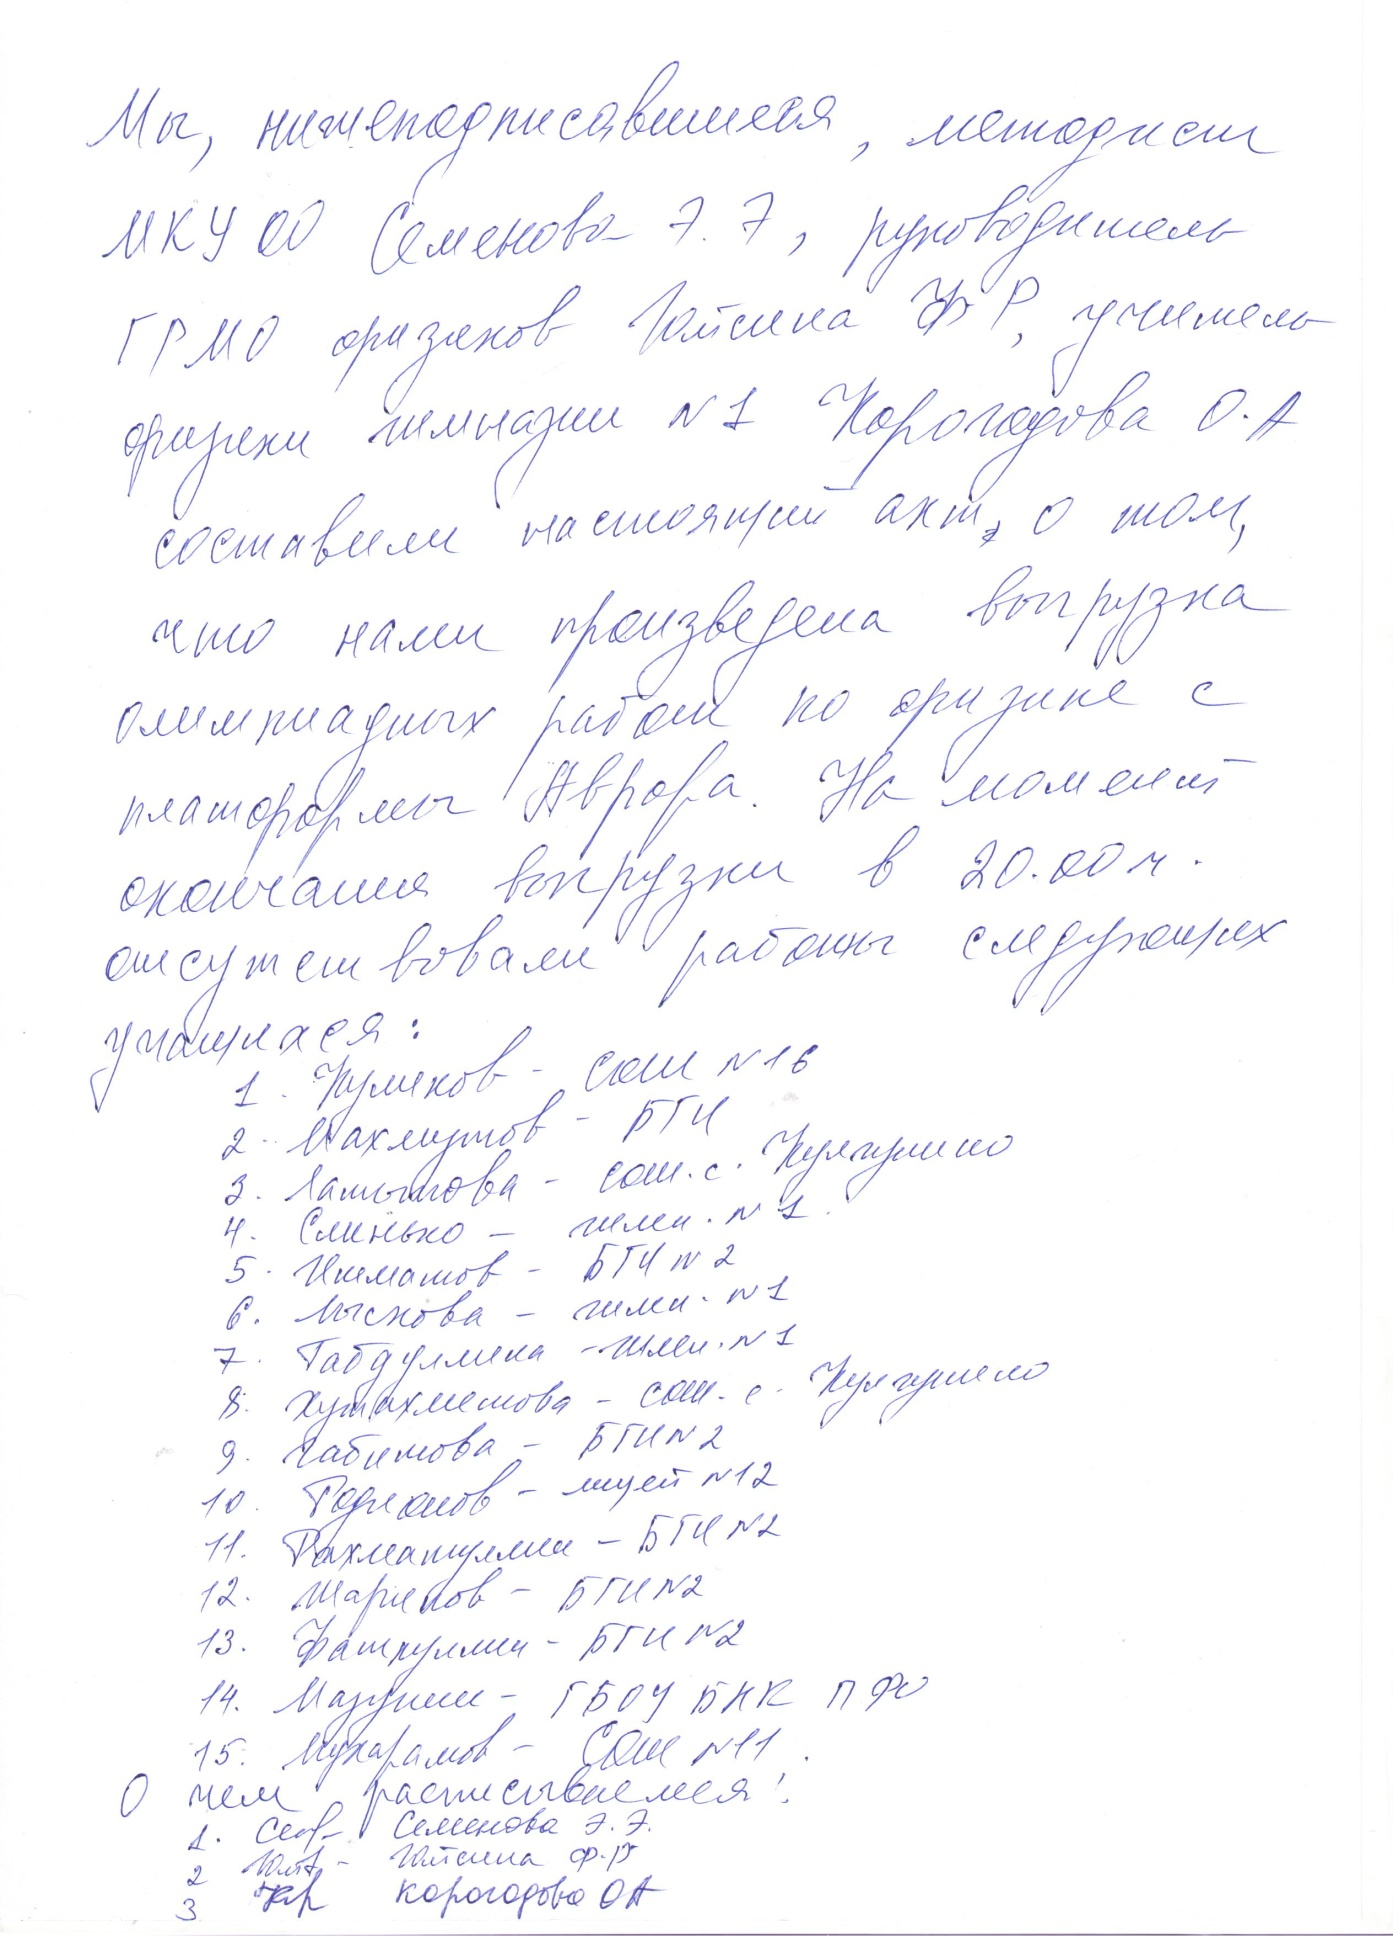 Мы, нижеподписавшиеся, методист
МКУ ОО Семенова Э. Э, руководитель
ГРМО физиков Юлтсина Ф Р, учитель
физики гимназии N1 Корогодова О.А
составили настоящий акт, о том,
что нами произведена выгрузка
олимпиадных работ по физике с
платформы Аврора. На момент
окончания выгрузки в 20.00 ч.
отсутствовали работы следующих
учащихся:
1. Куликов - СОШ N16
2. Махмутов - БГИ
3. Латыпова - сош. с. Кулгунино
4. Слинько - гимн. N1.
5. Ишматов - БГИ N2
6. Лыскова - гимн. N1
7. Габдуллина - гимн. N1
8. Кутлахметова - сош. с. Кулгунино
9. Габитова - БГИ N2
10. Родионов - лицей N12
11. Рахматуллин - БГИ N2
12. Шарипов - БГИ N2
13. Фаткуллин - БГИ N2
14. Мазунин - ГБОУ БКК ПФО
15. Мукарамов - СОШ N11.
О чем расписываемся:
1. Семенова Э. Э.
2 Ф.Р
3 Корогодова ОА